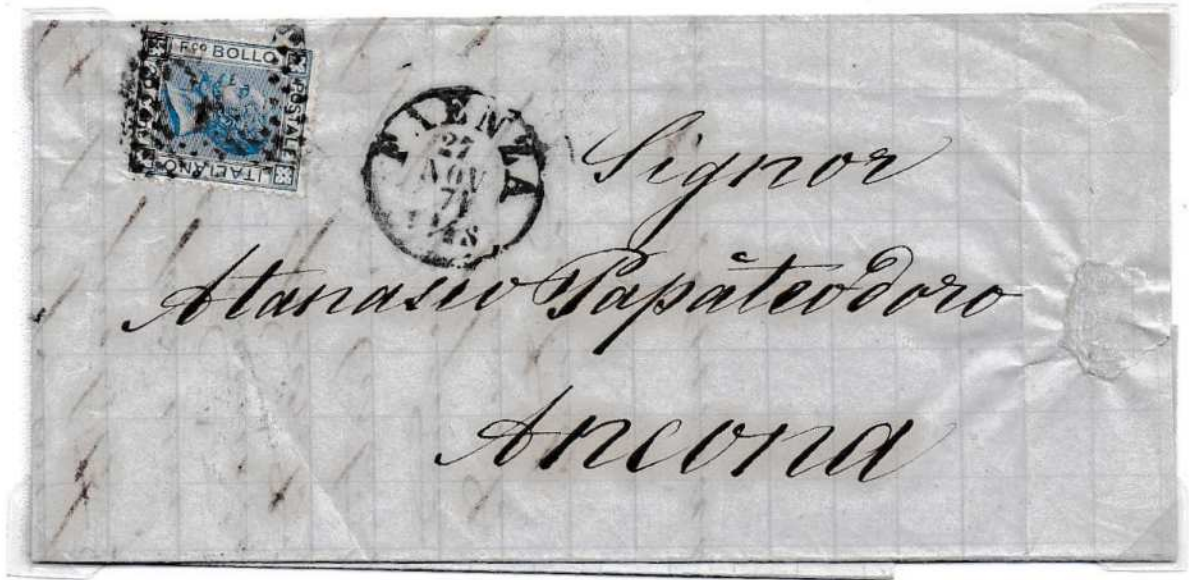 F.CO BOLLO
POSTALE
ITALIANO
FAENZA
27
NOV
71
Signor
Atanasio Papàteodoro
Ancona